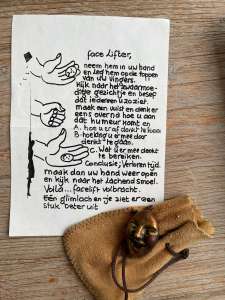 face lifter,
neem hem in uw hand
en leg hem op de toppen
van uw vingers.
kijk naar het zwaarmoe-
dige gezichtje en besef
dat iedereen u zo ziet.
maak een vuist en denk er
eens over na hoe u aan
dat humeur komt en
A. hoe u er af denkt te komen
B. hoe lang u er mee door
denkt te gaan.
C. Wat u er mee denkt
te bereiken.
Conclusie; Verloren tijd.
maak dan uw hand weer open
en kijk naar het lachend smoel.
Voilà... facelift volbracht.
Eén glimlach en je ziet er een
stuk beter uit